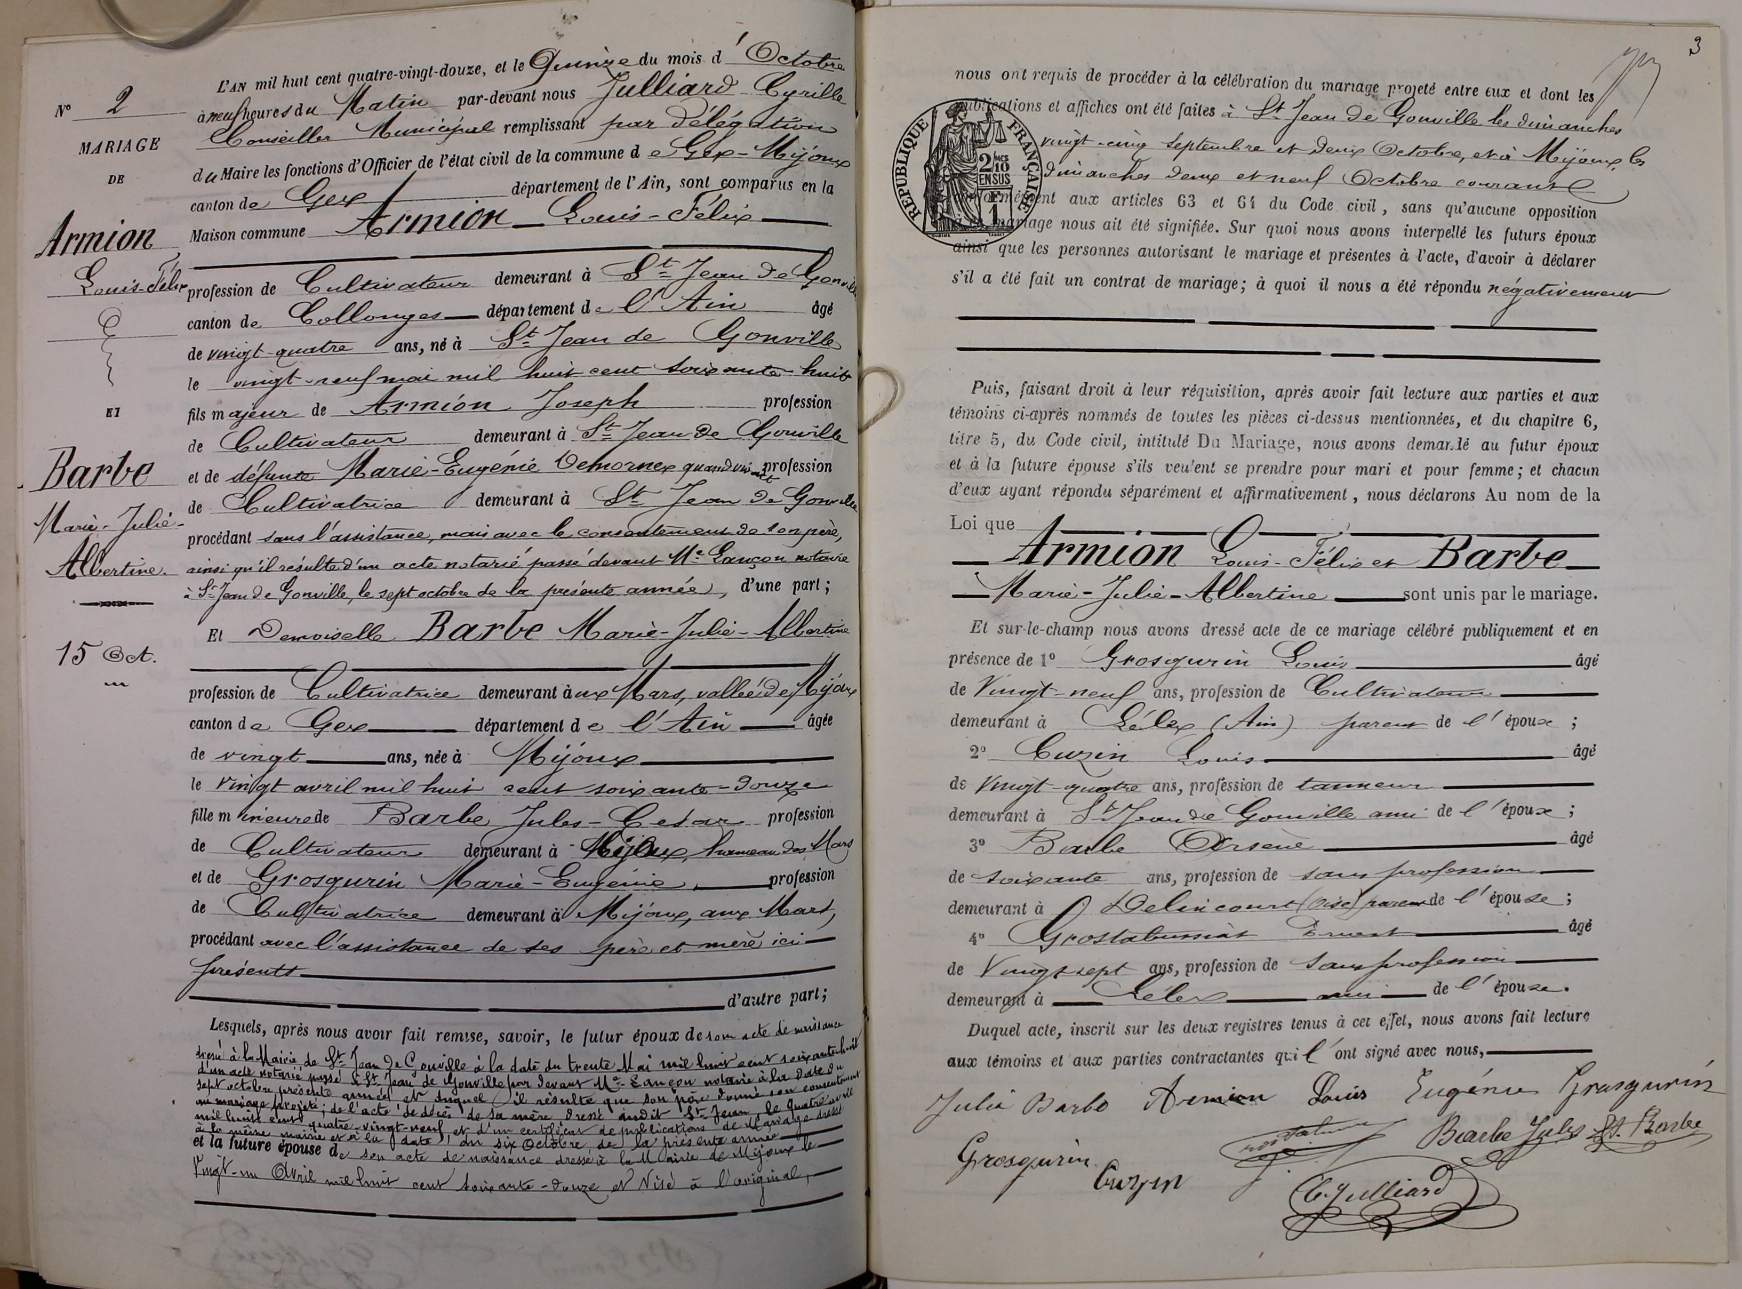 N° 2
MARIAGE
DE
Armion
Louis-Félix
ET
Barbe
Marie-Julie-
Albertine.
15 Oct.
L'AN mil huit cent quatre-vingt-douze, et le Quinze du mois d'Octobre
à neuf heures du Matin par-devant nous Julliard Cyrille
Conseiller Municipal remplissant par délégation
du Maire les fonctions d'Officier de l'état civil de la commune de Gex-Mijoux
canton de Gex département de l'Ain, sont comparus en la
Maison commune Armion Louis-Félix
profession de Cultivateur demeurant à St Jean de Gonville
canton de Collonges département de l'Ain âgé
de vingt-quatre ans, né à St Jean de Gonville
le vingt-neuf mai mil huit cent soixante-huit
fils majeur de Armion Joseph profession
de Cultivateur demeurant à St Jean de Gonville
et de défunte Marie-Eugénie Demornex quand vivait profession
de Cultivatrice demeurant à St Jean de Gonville
procédant sans l'assistance, mais avec le consentement de son père,
ainsi qu'il résulte d'un acte notarié passé devant Me Lançon notaire
à St Jean de Gonville, le sept octobre de la présente année, d'une part;
Et Demoiselle Barbe Marie-Julie-Albertine
profession de Cultivatrice demeurant aux Mars, vallée de Mijoux
canton de Gex département de l'Ain âgée
de vingt ans, née à Mijoux
le vingt avril mil huit cent soixante-douze
fille mineure de Barbe Jules-César profession
de Cultivateur demeurant à Mijoux, hameau des Mars
et de Grosgurin Marie-Eugénie, profession
de Cultivatrice demeurant à Mijoux, aux Mars,
procédant avec l'assistance de ses père et mère ici
présents
d'autre part;
Lesquels, après nous avoir fait remise, savoir, le futur époux de son acte de naissance
dressé à la Mairie de St Jean de Gonville à la date du trente Mai mil huit cent soixante-huit
d'un acte notarié passé à St Jean de Gonville par devant Me Lançon notaire à la date du
sept octobre présente année et duquel il résulte que son père donne son consentement
au mariage projeté; de l'acte de décès de sa mère dressé audit St Jean, le quatre avril
mil huit cent quatre-vingt-neuf et d'un certificat de publications de Mariage dressé
à la même mairie et à la date du six Octobre de la présente année
et la future épouse de son acte de naissance dressé à la Mairie de Mijoux le
Vingt-un Avril mil huit cent soixante-douze et Visé à l'original,
3
nous ont requis de procéder à la célébration du mariage projeté entre eux et dont les
publications et affiches ont été faites à St Jean de Gonville les dimanches
vingt-cinq Septembre et deux Octobre, et à Mijoux, les
dimanches deux et neuf Octobre courant
RÉPUBLIQUE FRANÇAISE
2/10 EN SUS
1F
conformément aux articles 63 et 64 du Code civil, sans qu'aucune opposition
à ce mariage nous ait été signifiée. Sur quoi nous avons interpellé les futurs époux
ainsi que les personnes autorisant le mariage et présentes à l'acte, d'avoir à déclarer
s'il a été fait un contrat de mariage; à quoi il nous a été répondu négativement
Puis, faisant droit à leur réquisition, après avoir fait lecture aux parties et aux
témoins ci-après nommés de toutes les pièces ci-dessus mentionnées, et du chapitre 6,
titre 5, du Code civil, intitulé Du Mariage, nous avons demandé au futur époux
et à la future épouse s'ils veulent se prendre pour mari et pour femme; et chacun
d'eux ayant répondu séparément et affirmativement, nous déclarons Au nom de la
Loi que
Armion Louis-Félix et Barbe
Marie-Julie-Albertine sont unis par le mariage.
Et sur-le-champ nous avons dressé acte de ce mariage célébré publiquement et en
présence de 1° Grosgurin Louis âgé
de Vingt-neuf ans, profession de Cultivateur
demeurant à Lélex (Ain) parent de l'épouse;
2° Cuzin Louis âgé
de Vingt-quatre ans, profession de tanneur
demeurant à St Jean de Gonville ami de l'époux;
3° Barbe Arsène âgé
de soixante ans, profession de sans profession
demeurant à Delincourt (Oise) parent de l'épouse;
4° Ernest âgé
de Vingt sept ans, profession de sans profession
demeurant à Lélex ami de l'épouse.
Duquel acte, inscrit sur les deux registres tenus à cet effet, nous avons fait lecture
aux témoins et aux parties contractantes qui l'ont signé avec nous,
Julie Barbe Armion Louis Eugénie Grosgurin
Grosgurin Cuzin Barbe Jules A. Barbe
C. Julliard